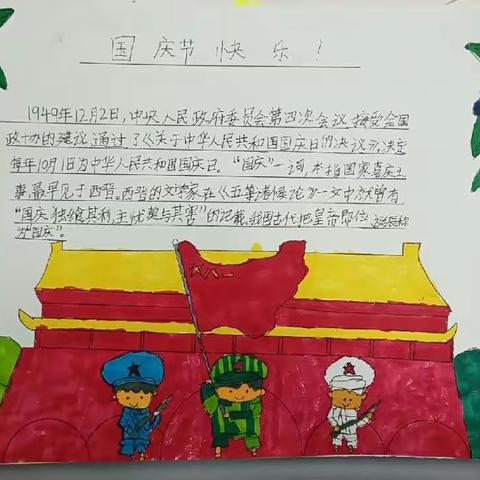 国庆节快乐！
1949年12月2日，中央人民政府委员会第四次会议接受全国
政协的建议，通过了《关于中华人民共和国国庆日的决议》，决定
每年10月1日为中华人民共和国国庆日。“国庆”一词，本指国家喜庆之
事，最早见于西晋。西晋的文学家在《五等诸侯论》一文中就曾有
“国庆独飨其利，主忧莫与其害”的记载、我国古代把皇帝即位、诞辰称
为“国庆”。
八一